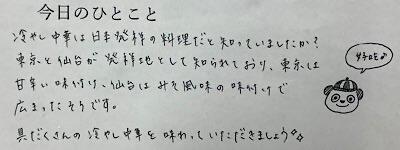 今日のひとこと
冷やし中華は日本発祥の料理だと知っていましたか?
東京と仙台が発祥地として知られており、東京は
甘辛い味付け、仙台はみそ風味の味付けで
広まったそうです。
具だくさんの冷やし中華を味わっていただきましょう